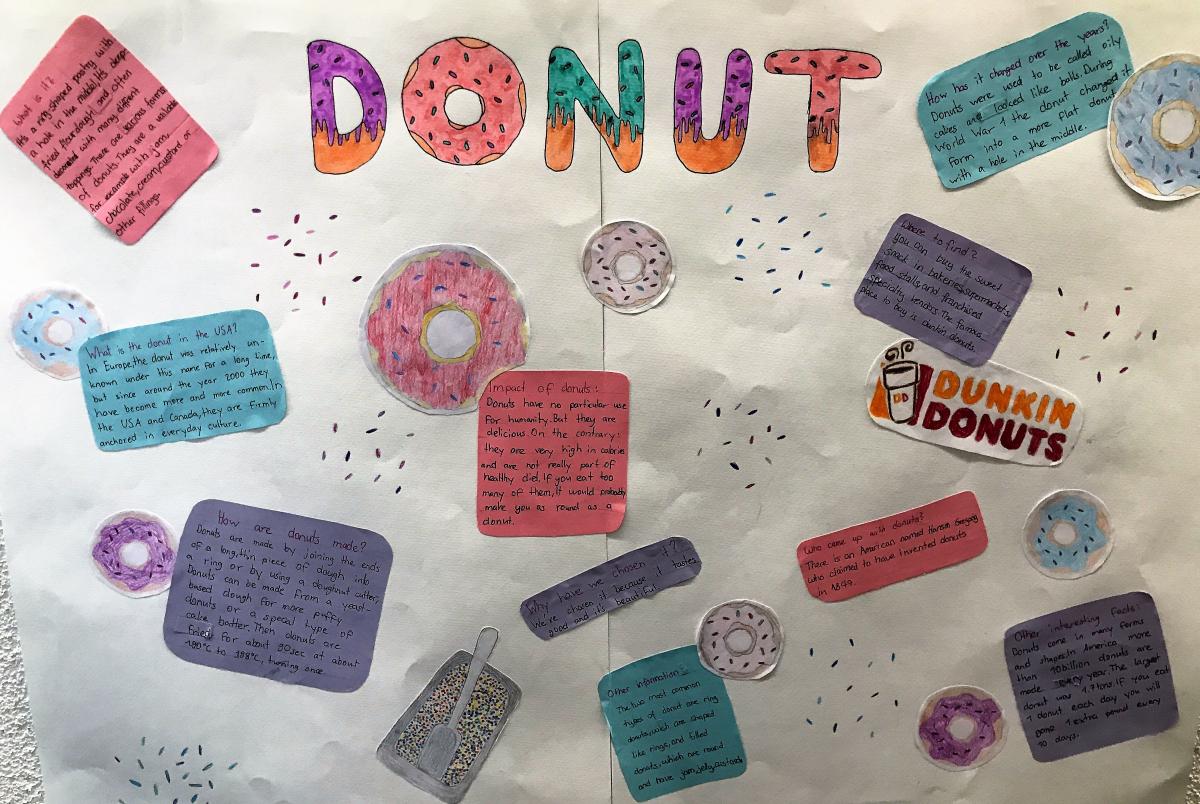 DONUT
What is it?
It's a ring-shaped pastry with
a hole in the middle. It's deep-
fried flour dough and often
decorated with many diffrent
toppings. There are various forms
of donuts. They are available
for example with jam,
chocolate, cream, custard or
other fillings.
How has it changed over the years?
Donuts were used to be called oily
cakes and looked like balls. During
World War 1 the donut changed it
form into a more flat donut
with a hole in the middle.
Where to find?
You can buy the sweet
snack in bakeries, supermarkets,
food stalls, and franchised
specialty vendors. The famous
place to buy is dunkin donuts.
DD
DUNKIN
DONUTS
What is the donut in the USA?
In Europe, the donut was relatively un-
known under this name for a long time,
but since around the year 2000 they
have become more and more common. In
the USA and Canada, they are firmly
anchored in everyday culture.
Impact of donuts:
Donuts have no particular use
for humanity. But they are
delicious. On the contrary:
they are very high in calories
and are not really part of
healthy diet. If you eat too
many of them, it would probably
make you as round as a
donut.
How are donuts made?
Donuts are made by joining the ends
of a long, thin piece of dough into
a ring or by using a doughnut cutter.
Donuts can be made from a yeast-
based dough for more puffy
donuts or a special type of
cake batter. Then donuts are
fried for about 90sec at about
190°C to 198°C, turning once.
Why have we chosen it?
We've chosen it because it tastes
good and it's beautiful
Who came up with donuts?
There is an American named Hanson Gregory
who claimed to have invented donuts
in 1847.
Other information:
The two most common
types of donut are ring
donuts, which are shaped
like rings, and filled
donuts, which are round
and have jam, jelly, custard
Other interesting facts:
Donuts come in many forms
and shapes. In America, more
than 10billion donuts are
made every year. The largest
donut was 1.7tons. If you eat
1 donut each day you will
gane 1 extra pound every
10 days.